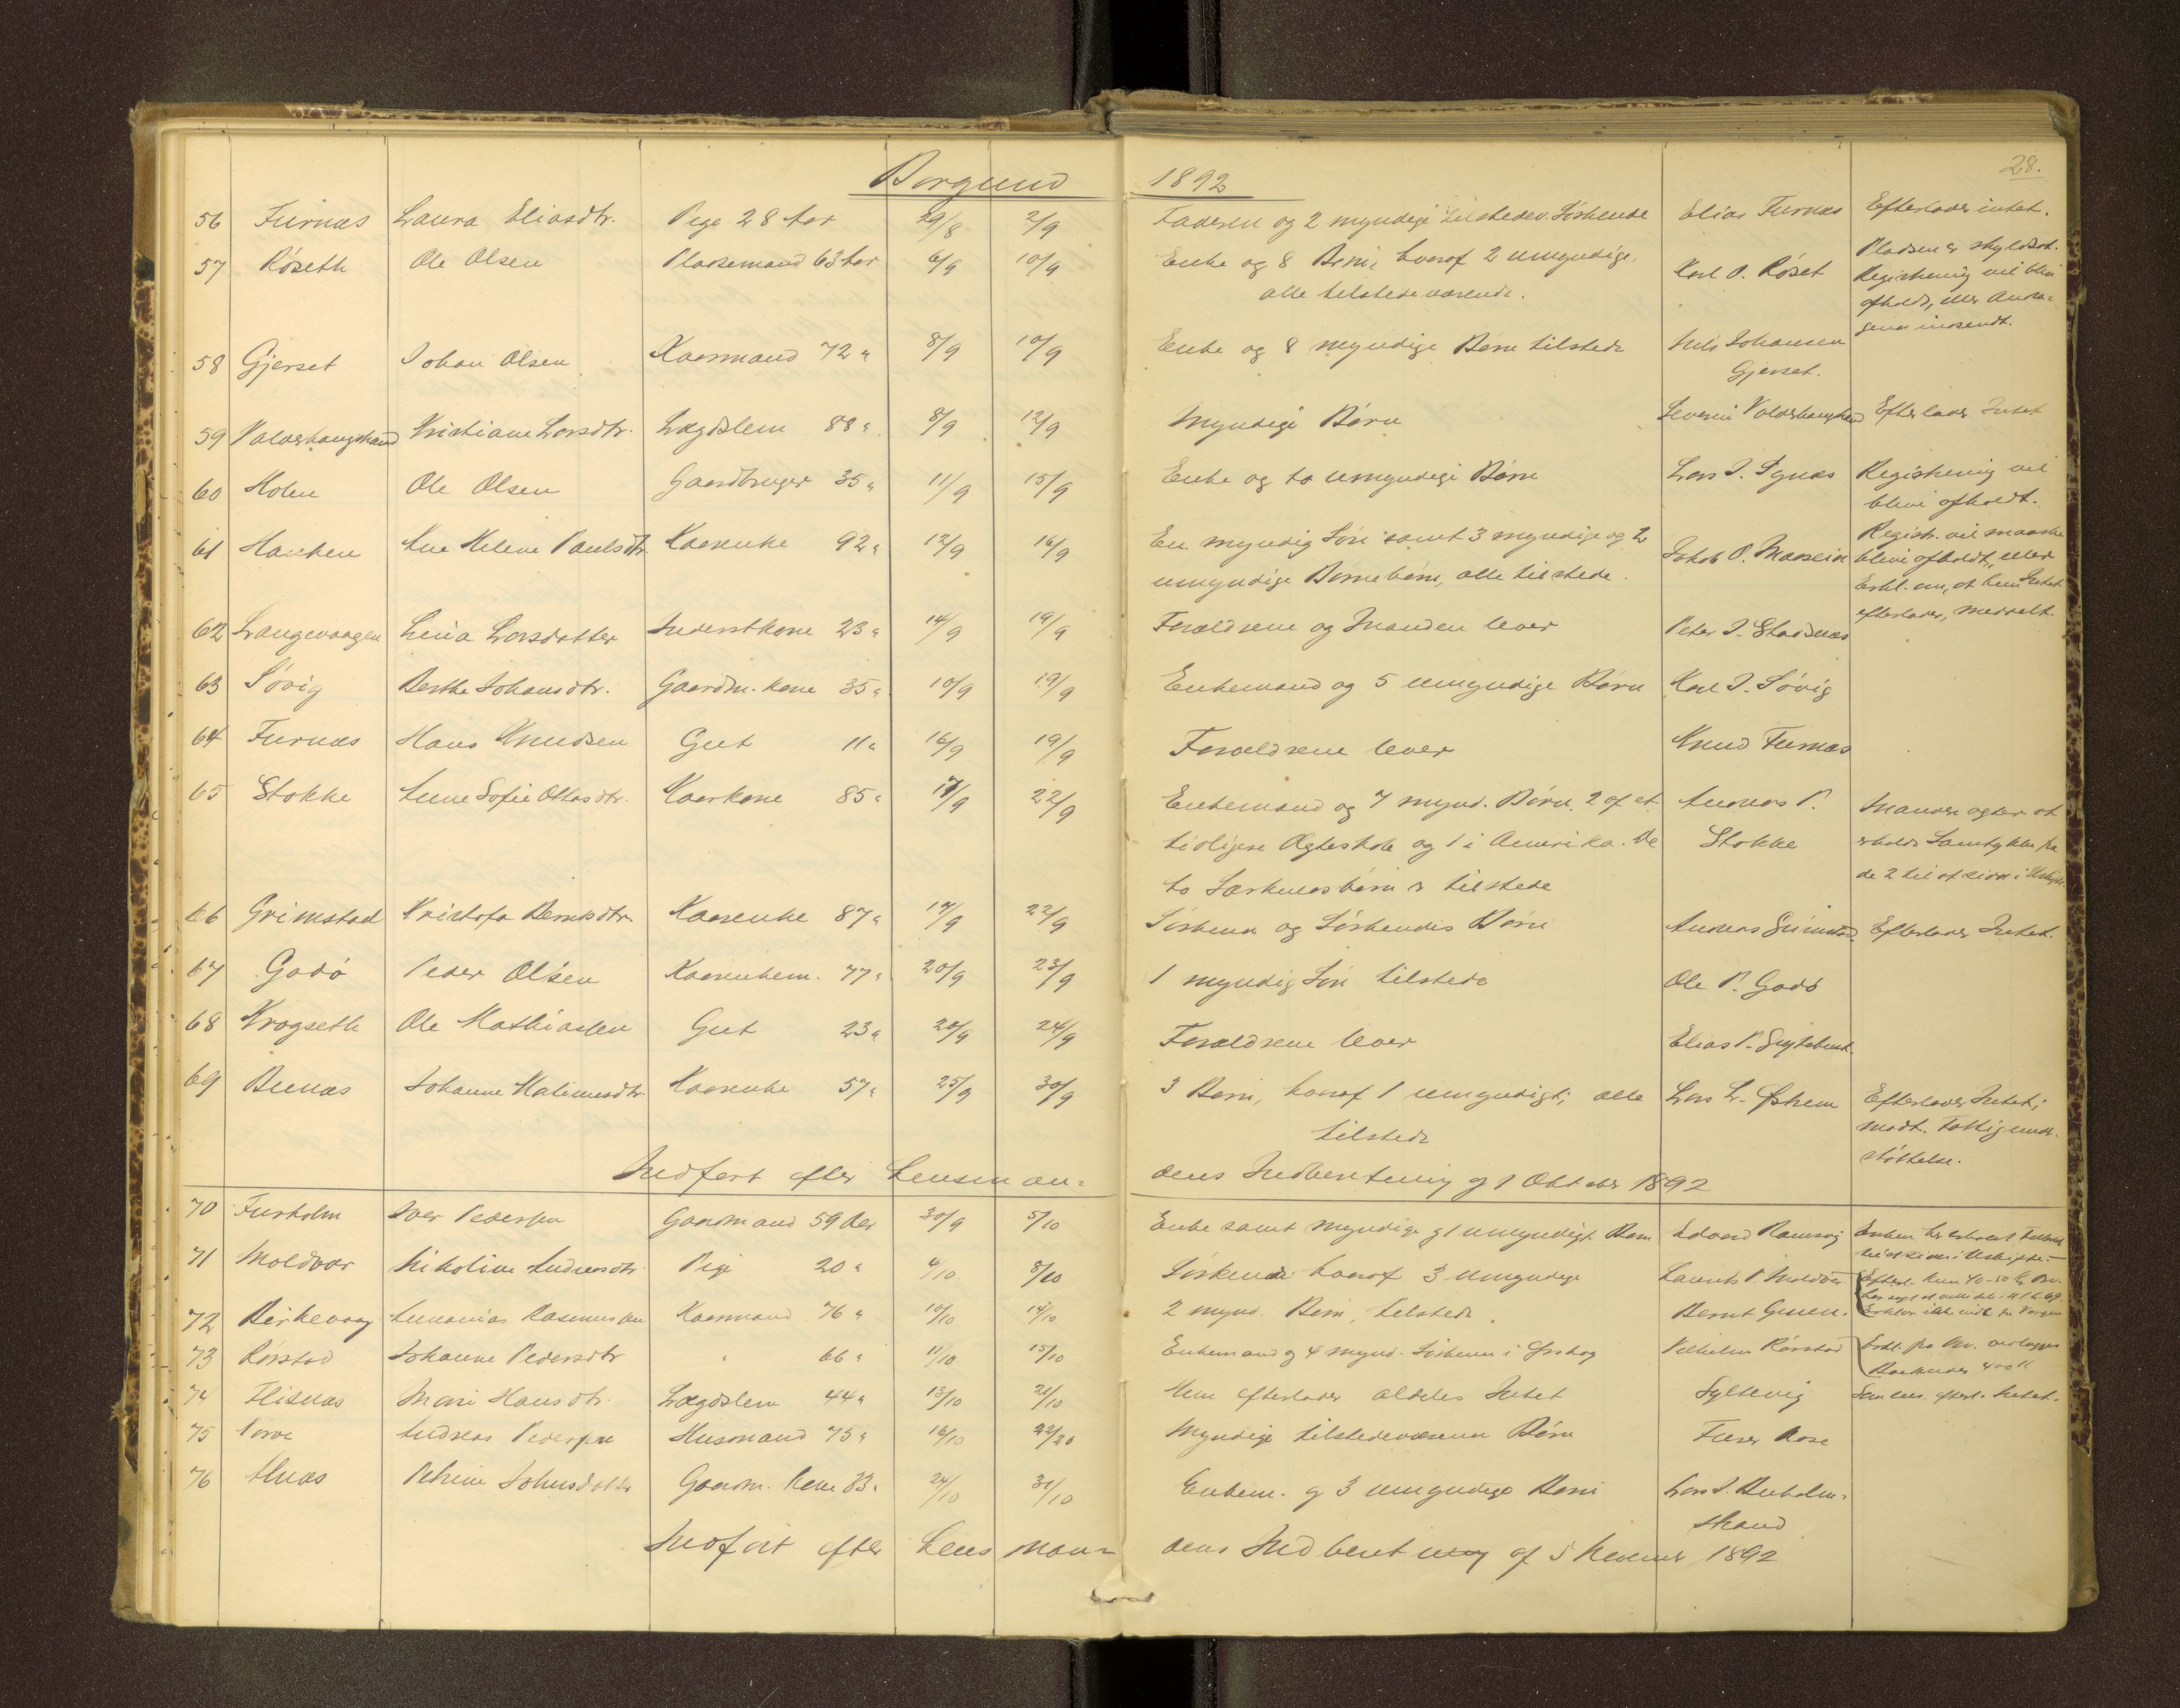 28.
Borgund 1892
56 Furnæs Laura Eliasdtr. Pige 28 Aar 29/8 2/9 Faderen og 2 myndige tilstedev. Søskende Elias Furnæs Efterlader intet.
57 Røseth Ole Olsen Pladsemand 63 Aar 6/9 10/9 Enke og 8 Børn, hvoraf 2 umyndige. Karl O. Røset Pladsen er skyldsat.
alle tilstedeværende. Registrering vil blive
afholdt, eller Andra=
gende indsendt.
58 Gjerset Johan Olsen Kaarmand 72 " 8/9 10/9 Enke og 8 myndige Børn tilstede Nils Johansen
Gjerset.
59 Valderhaugstrand Kristiane Larsdtr. Lægdslem 88 " 8/9 12/9 Myndige Børn Severin Valderhaugstrand Efterlader Intet
60 Holen Ole Olsen Gaardbruger 35 " 11/9 15/9 Enke og to umyndige Børn Lars J. Registrering vil
blive afholdt.
61 Ane Helene Paulsdtr. Kaarenke 92 " 12/9 16/9 En myndig Søn samt 3 myndige og 2 Jakob O. Registr. vil maaske
umyndige Børnebørn, alle tilstede. blive afholdt, eller
Erkl. om, at hun Intet
efterlader, meddelt.
62 Langevaagen Lina Larsdatter Inderstkone 23 " 14/9 19/9 Forældrene og Manden lever Peter J. Stadsnæs
63 Søvig Berthe Johansdtr. Gaardm. kone 35 " 10/9 19/9 Enkemand og 5 umyndige Børn Karl J. Søvig
64 Furnæs Hans Knudsen Gut 11 " 16/9 19/9 Forældrene lever Knud Furnæs
65 Stokke Anne Sofie Ottosdtr. Kaarkone 85 " 17/9 22/9 Enkemand og 7 mynd. Børn. 2 af et Andreas P. Manden agter at
tidligere Ægteskab og 1 i Amerika. De Stokke erholde Samtykke fra
to Særkuldsbørn er tilstede de 2 til at sidde i Uskifte.
66 Grimstad Kristofa Berntsdtr. Kaarenke 87 " 17/9 22/9 Søskende og Søskendes Børn Andreas Grimstad. Efterlader Intet.
67 Godø Peder Olsen Kaarenkem. 77 " 20/9 23/9 1 myndig Søn tilstede Ole P. Godø
68 Krogseth Ole Mathiassen Gut 23 " 20/9 24/9 Forældrene lever Elias P.
69 Johanne Kaarenke 57 " 25/9 30/9 3 Børn, hvoraf 1 umyndigt; alle Lars L. Efterlader Intet;
tilstede modt. Fattigunder-
støttelse.
Indført efter Lensman= dens Indberetning af 1 Oktober 1892
70 Furholm Iver Pedersen Gaardmand 59 Aar 30/9 5/10 Enke samt myndige og 1 umyndigt Barn Edvard Ramsvig
til at sidde i Uskifte.
71 Moldvær Nikoline Andreasdtr. Pige 20 " 4/10 8/10 Søskende hvoraf 3 umyndige Laurits P. Moldvær
72 Birkevaag Rasmussen Kaarmand 76 " 10/10 14/10 2 mynd. Børn, tilstede. Bernt
73 Rørstad Johanne Pedersdtr " 66 " 11/10 15/10 Enkemand og 4 mynd. Søskende i Ørskog Vilhelm Rørstad
74 Flisnæs Mari Hansdtr. Lægdslem 44 " 13/10 21/10 Hun efterlader aldeles Intet Syltevig
75 Andreas Pedersen Husmand 75 " 16/10 Myndige tilstedeværende Børn
76 Petrine Johnsdatter Gaardm. Kone 33 " 24/10 31/10 Enkem. og 3 umyndige Børn Lars J.
strand
Indført efter Lens man= dens Indberetning af 5 November 1892